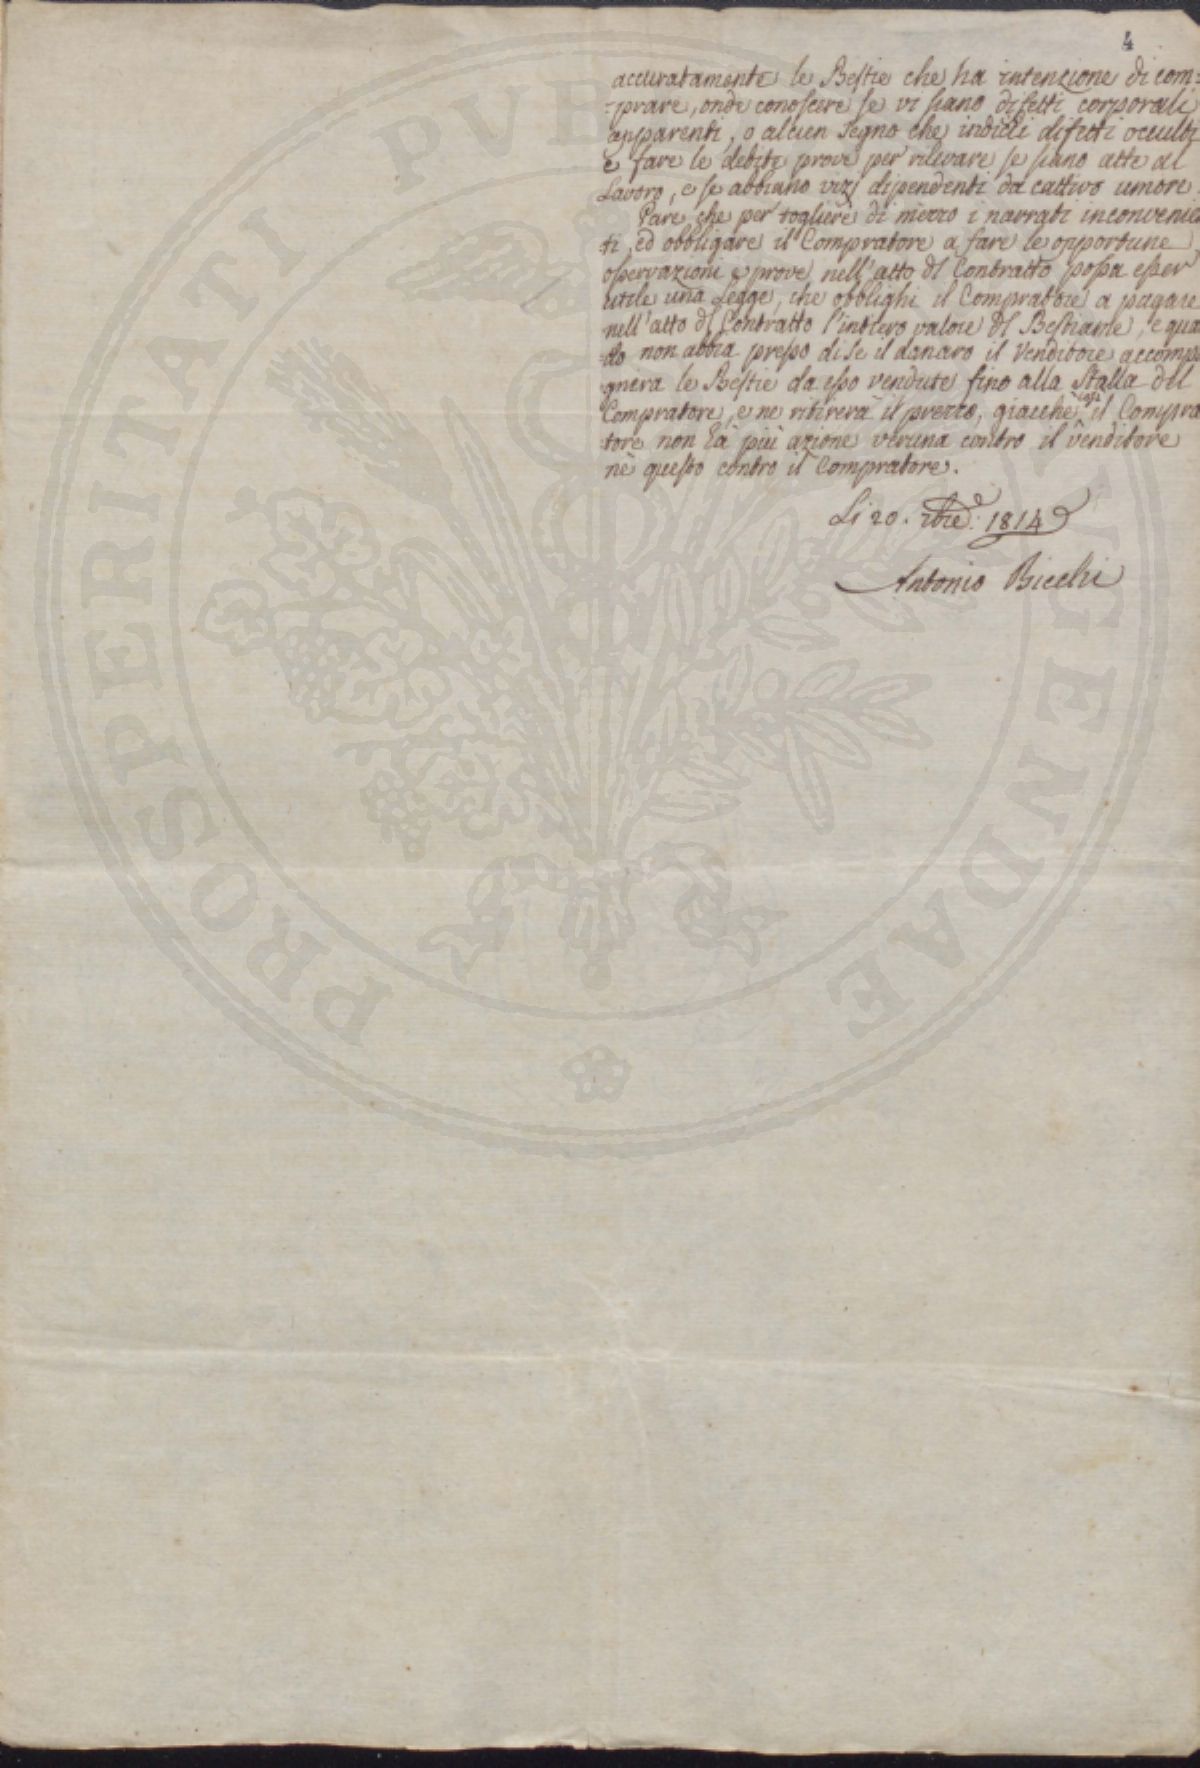 4
accuratamente le Bestie che ha intenzione di com=
=prare, onde conoscere se vi siano difetti corporali
apparenti, o alcun segno che indichi difetti occulti
e fare le debite prove per rilevare se siano atte al
Lavoro, e se abbiano vizj dipendenti da cattivo umore.
Pare che per togliere di mezzo i narrati inconvenien
ti, ed obbligare il Compratore a fare le opportune
osservazioni e prove nell'atto dl Contratto possa esser
utile una Legge, che obblighi il Compratore a pagare
nell'atto dl Contratto l'intiero valore dl Bestiame, e qua
=do non abbia presso di se il danaro il Venditore accompa
gnerà le Bestie da esso vendute fino alla Stalla del
Compratore, e ne ritirerà il prezzo, giacchè così il Compra
tore non hà più azione veruna contro il venditore
nè questo contro il Compratore.
Li 20. 1814
Antonio Bicchi
PROSPERITATI PVB AVGENDAE